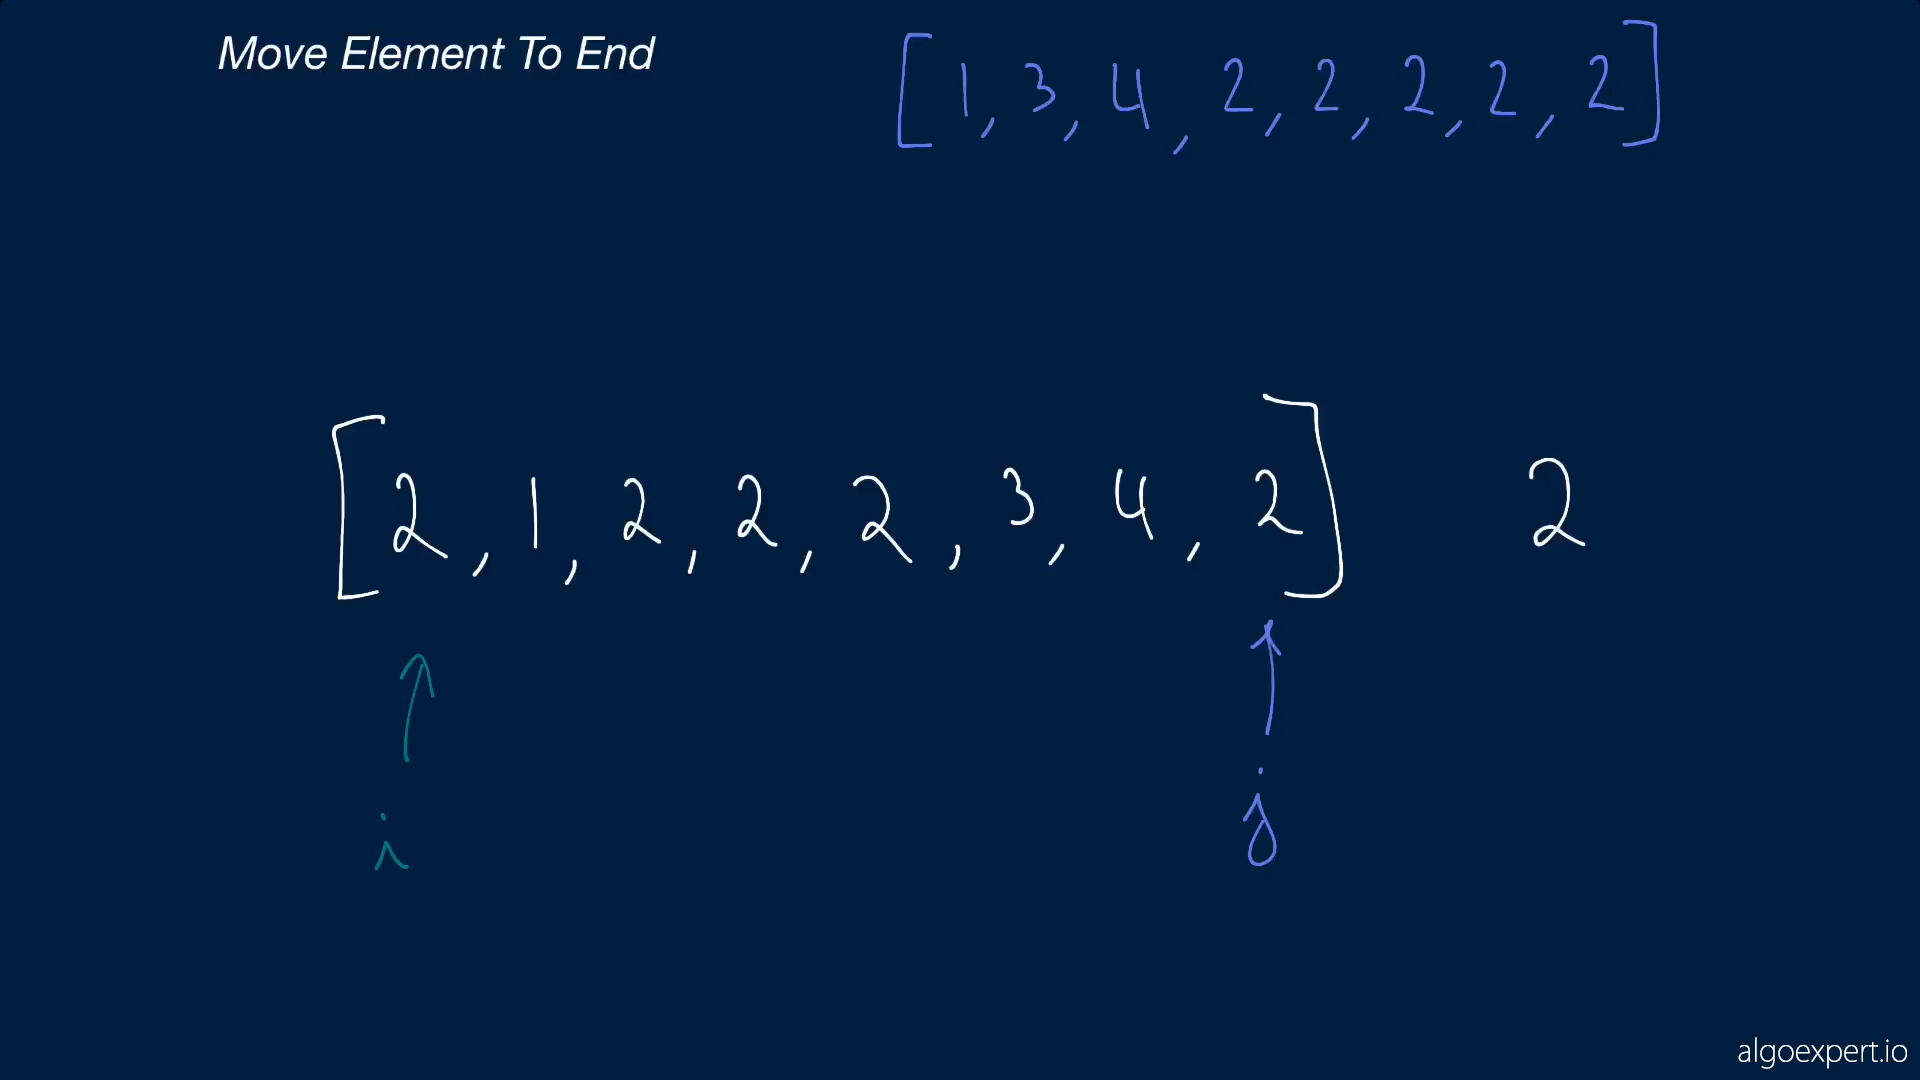 Move Element To End
[1, 3, 4, 2, 2, 2, 2, 2]
[2, 1, 2, 2, 2, 3, 4, 2] 2
i j
algoexpert.io